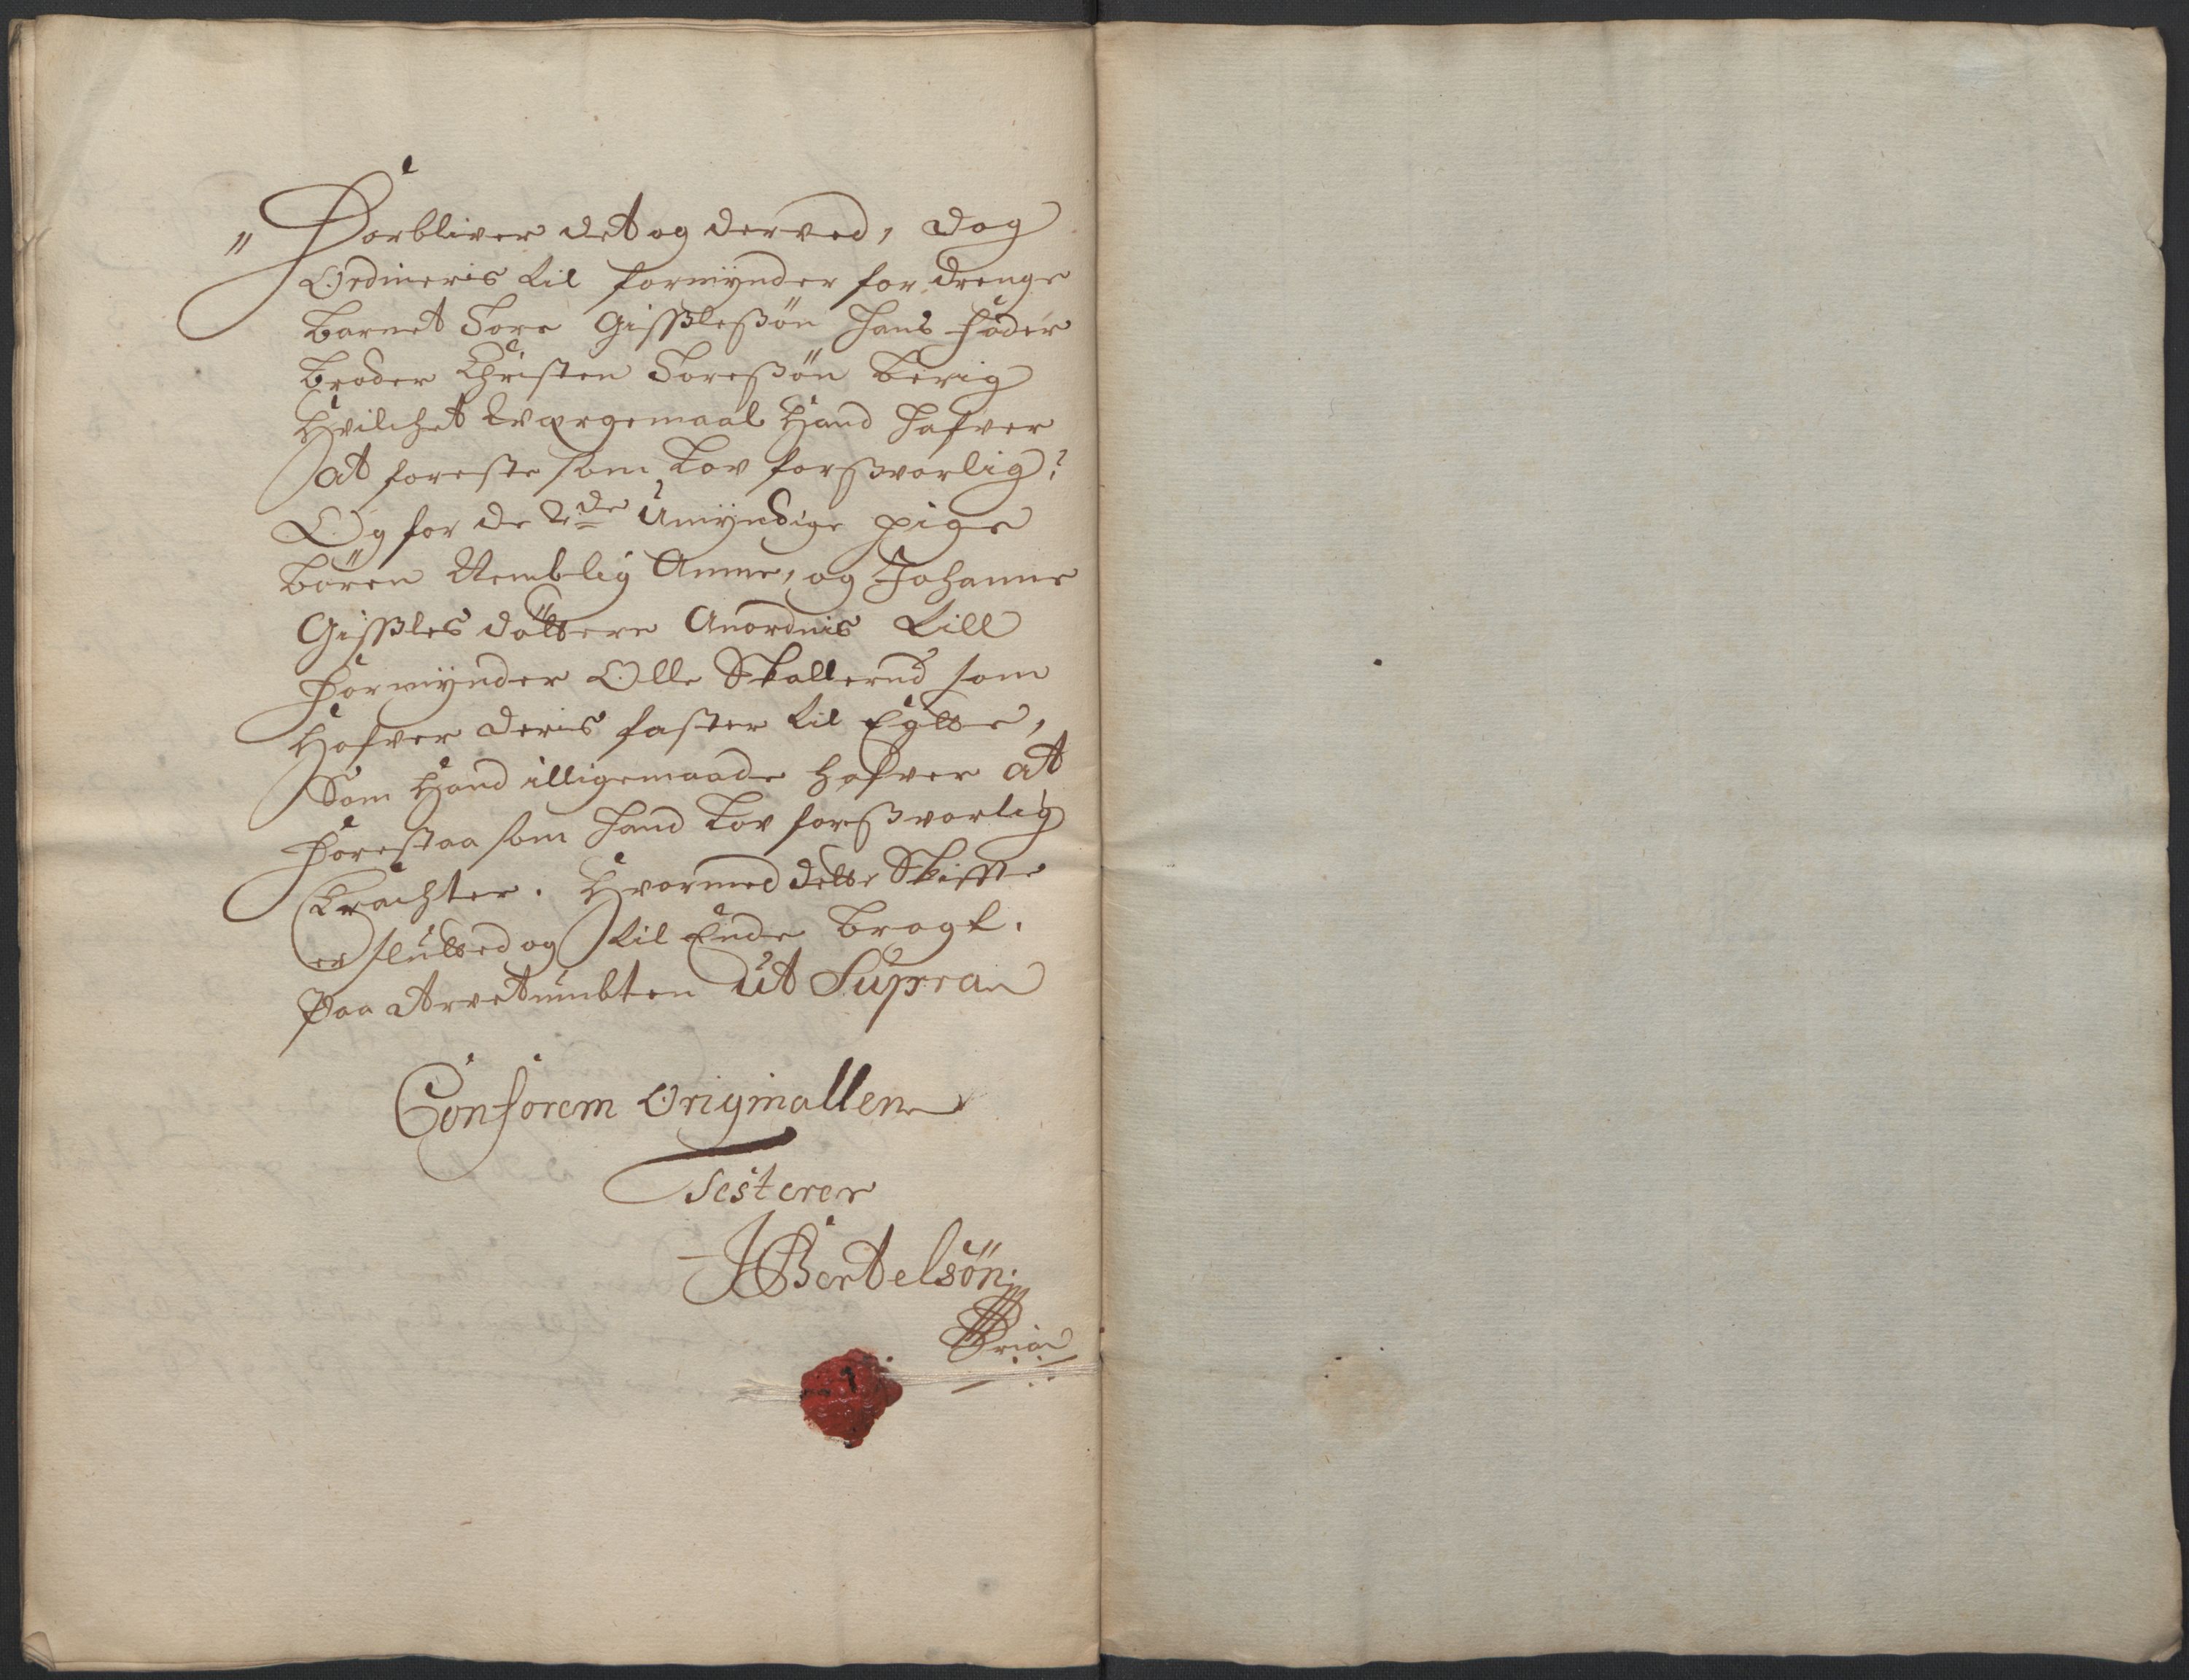 " Forbliver det og derved, dog
Ordineris til formynder for drenge
barnet Tore Gisßleßøn hans fader
broder Christen Toreßøn berig
Hvilchet Værgemaal Hand hafver
at foreste som Lov forßvarlig?
Og for de 2de Umyndige pige
børen Nemblig Anne, og Johanne
Gisßles døttere Anordnis till
Formynder Olle Skallerud som
Hafver deris faster til Egtte,
Som Hand illigemaade hafver at
forestaa som hand Lov forßvarlig
Erachter. Hvormed dette Skiffte
er slutted og til Ende bragt.
Paa Arvetumbten ut Supra
Conforem Originallen
Testerer
JBertelsøn